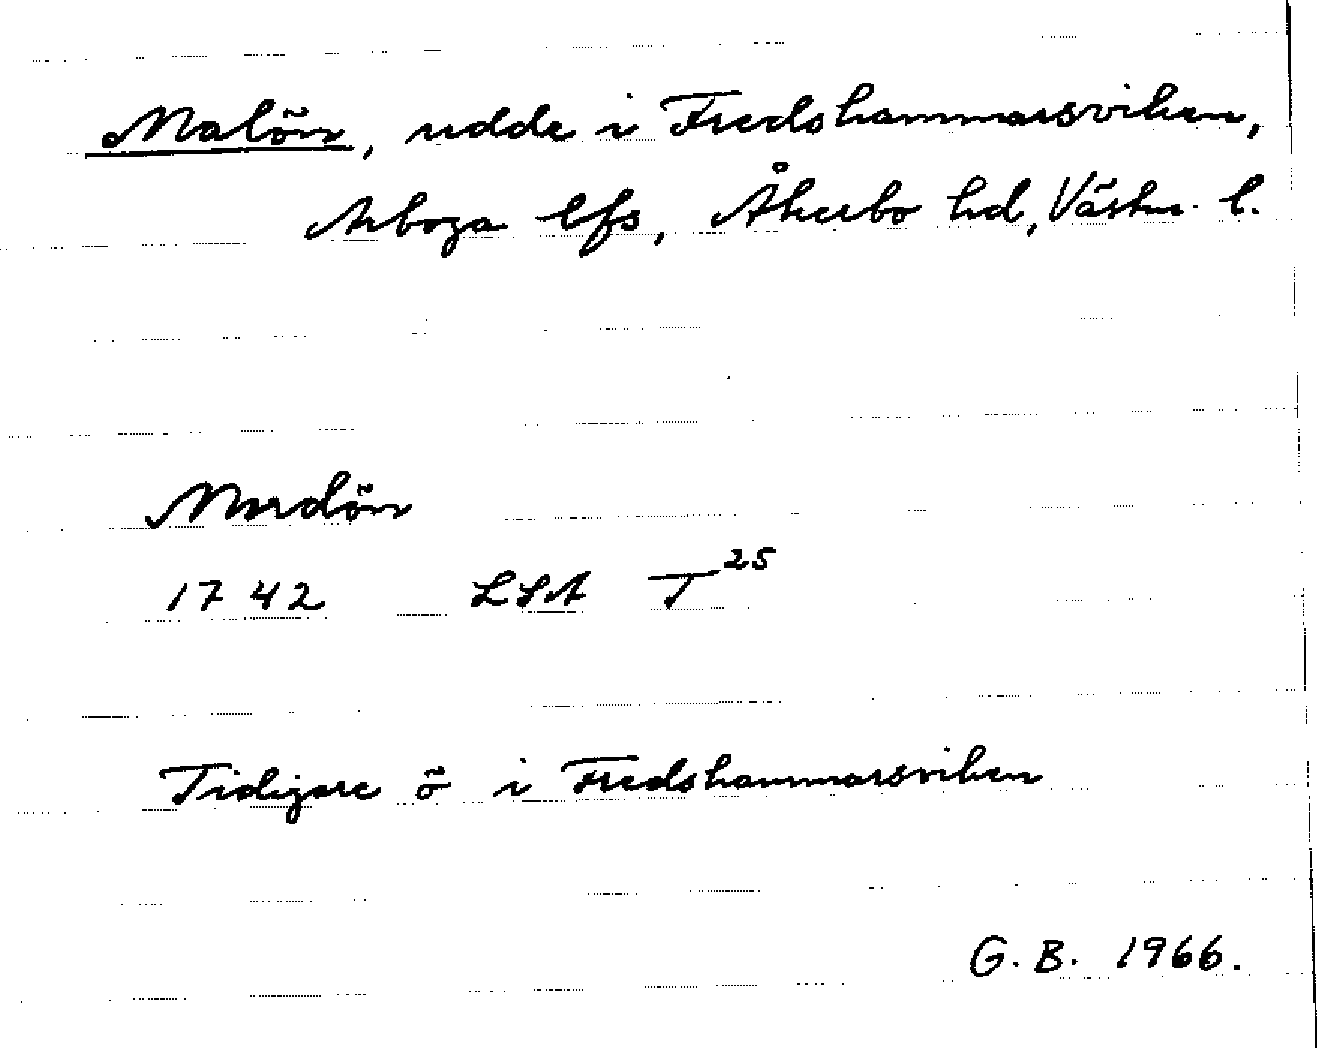 Malön, udde i Fredshammarsviken,
Arboga lfs, Åkerbo hd, Västm. l.
Mardön
1742 LSA T25
Tidigare ö i Fredshammarsviken
G. B. 1966.